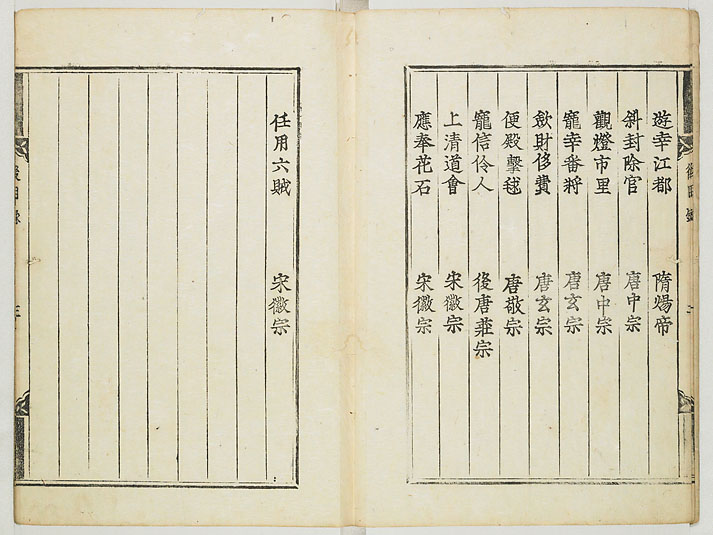 遊幸江都 隋煬帝
斜封除官 唐中宗
觀燈市里 唐中宗
寵幸番將 唐玄宗
斂財侈費 唐玄宗
便殿擊毬 唐敬宗
寵信伶人 後唐莊宗
上清道會 宋徽宗
應奉花石 宋徽宗
任用六賊 宋徽宗
三